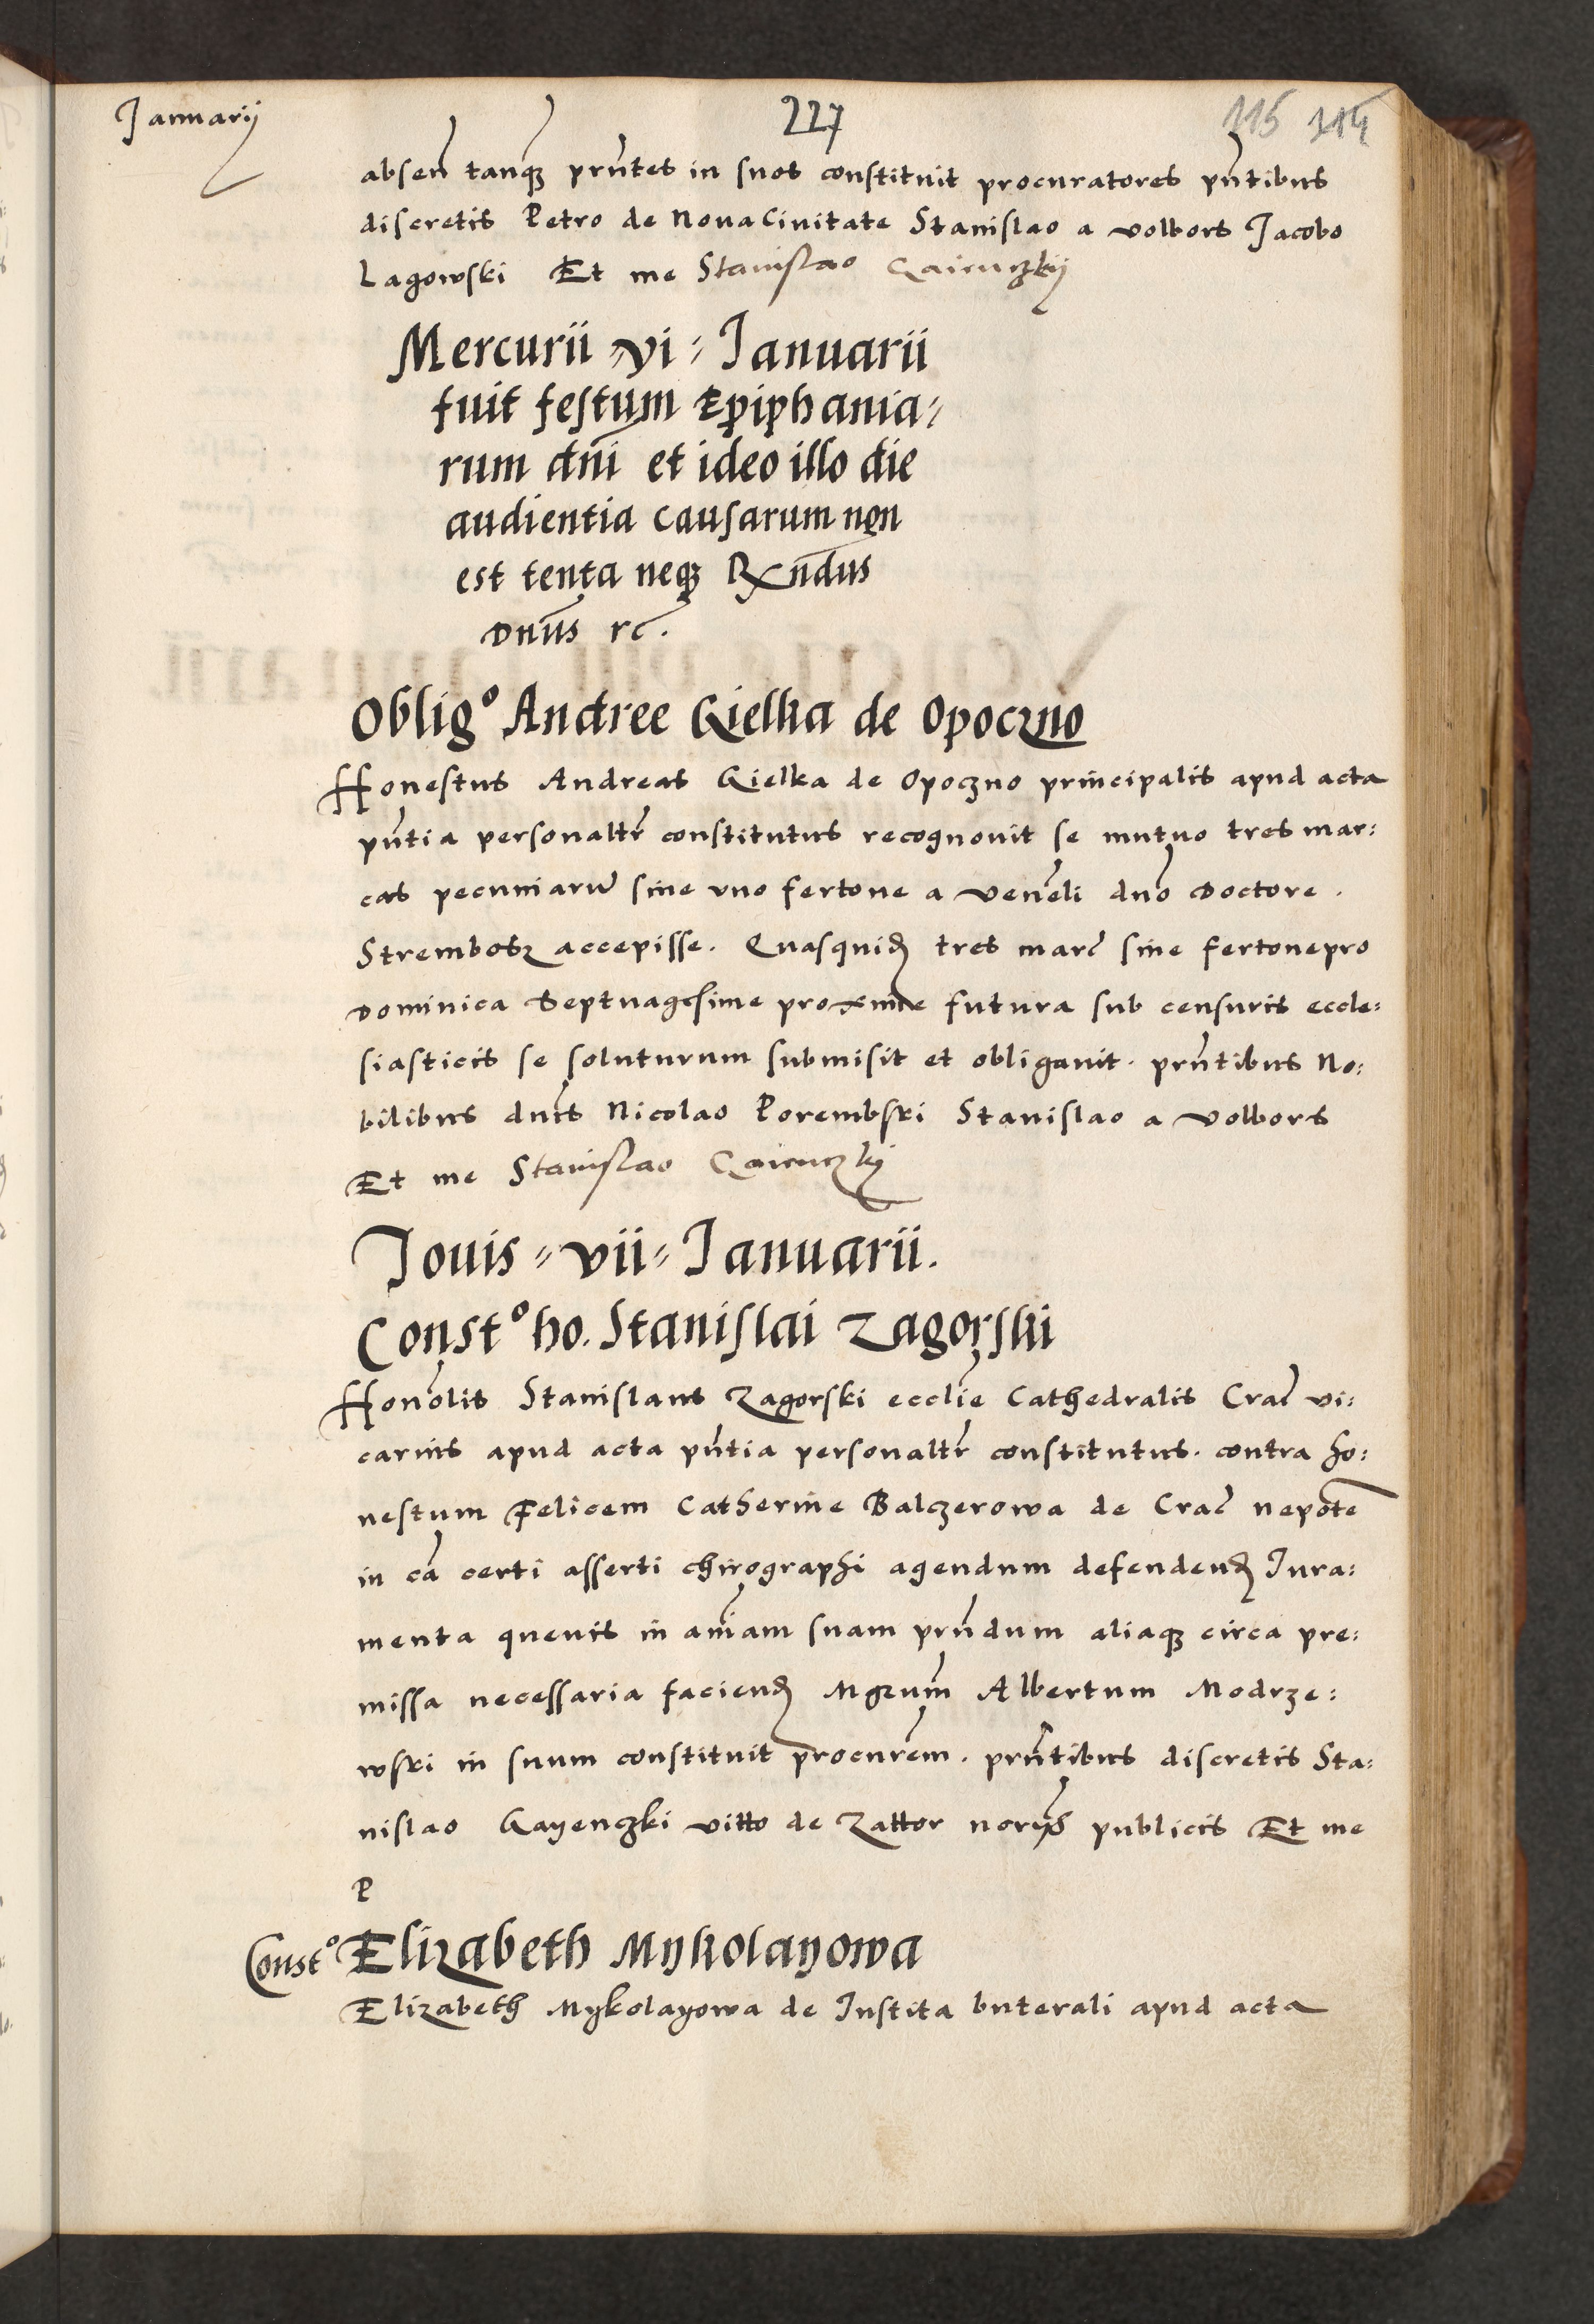 Januarij
227
115 114
absen̄ tanq̄ꝫ prn̄tes in suos constituit procuratores pn̄tibus
discretis Petro de Nova Civitate Stanislao a volbors Jacobo
Lagowski Et me Stanislao Gaienczkij
Mercurii vi Januarii
fuit festum Epiphania=
rum dn̄i et ideo illo die
audientia causarum non
est tenta neqꝫ Rn̄dus
Dn̄us rc̄.
Obligº Andree Gielka de Opoczno
Honestus Andreas Gielka de Opoczno principalis apud acta
pn̄tia personaltr̄ constitutus recognovit se mutuo tres mar=
cas pecuniarū sine uno fertone a ven̄eli dn̄o Doctore.
Strembosz accepisse. Quasquid tres marc̄ sine fertone pro
Dominica Septuagesime proxime futura sub censuris eccle=
siasticis se soluturum submisit et obligavit. prn̄tibus No=
bilibus dn̄is Nicolao Porembski Stanislao a Volbors
Et me Stanislao Gaienczkij
Jouis = vii = Januarii.
Constº ho. Stanislai Zagorski
Hono̅lis Stanislaus Zagorski eccli̅e Cathedralis Crac̄ vi=
carius apud acta pn̄tia personaltr̄ constitutus. contra ho=
nestum Felicem Catherine Balczerowa de Crac̄ nepotē
in cā certi asserti chirographi agendum defenden̄ Jura=
menta quevis in ani̅am suam prn̄dum aliaqꝫ circa pre=
missa necessaria facien̄ Mgr̄um Albertum Modrze=
wski in suum constituit procure̅m. prn̄tibus discretis Sta=
nislao Gayenczki vitto de Zattor norijs publicis Et me
P
Constº Elizabeth Mykolayowa
Elizabeth Mykolayowa de Instita buterali apud acta